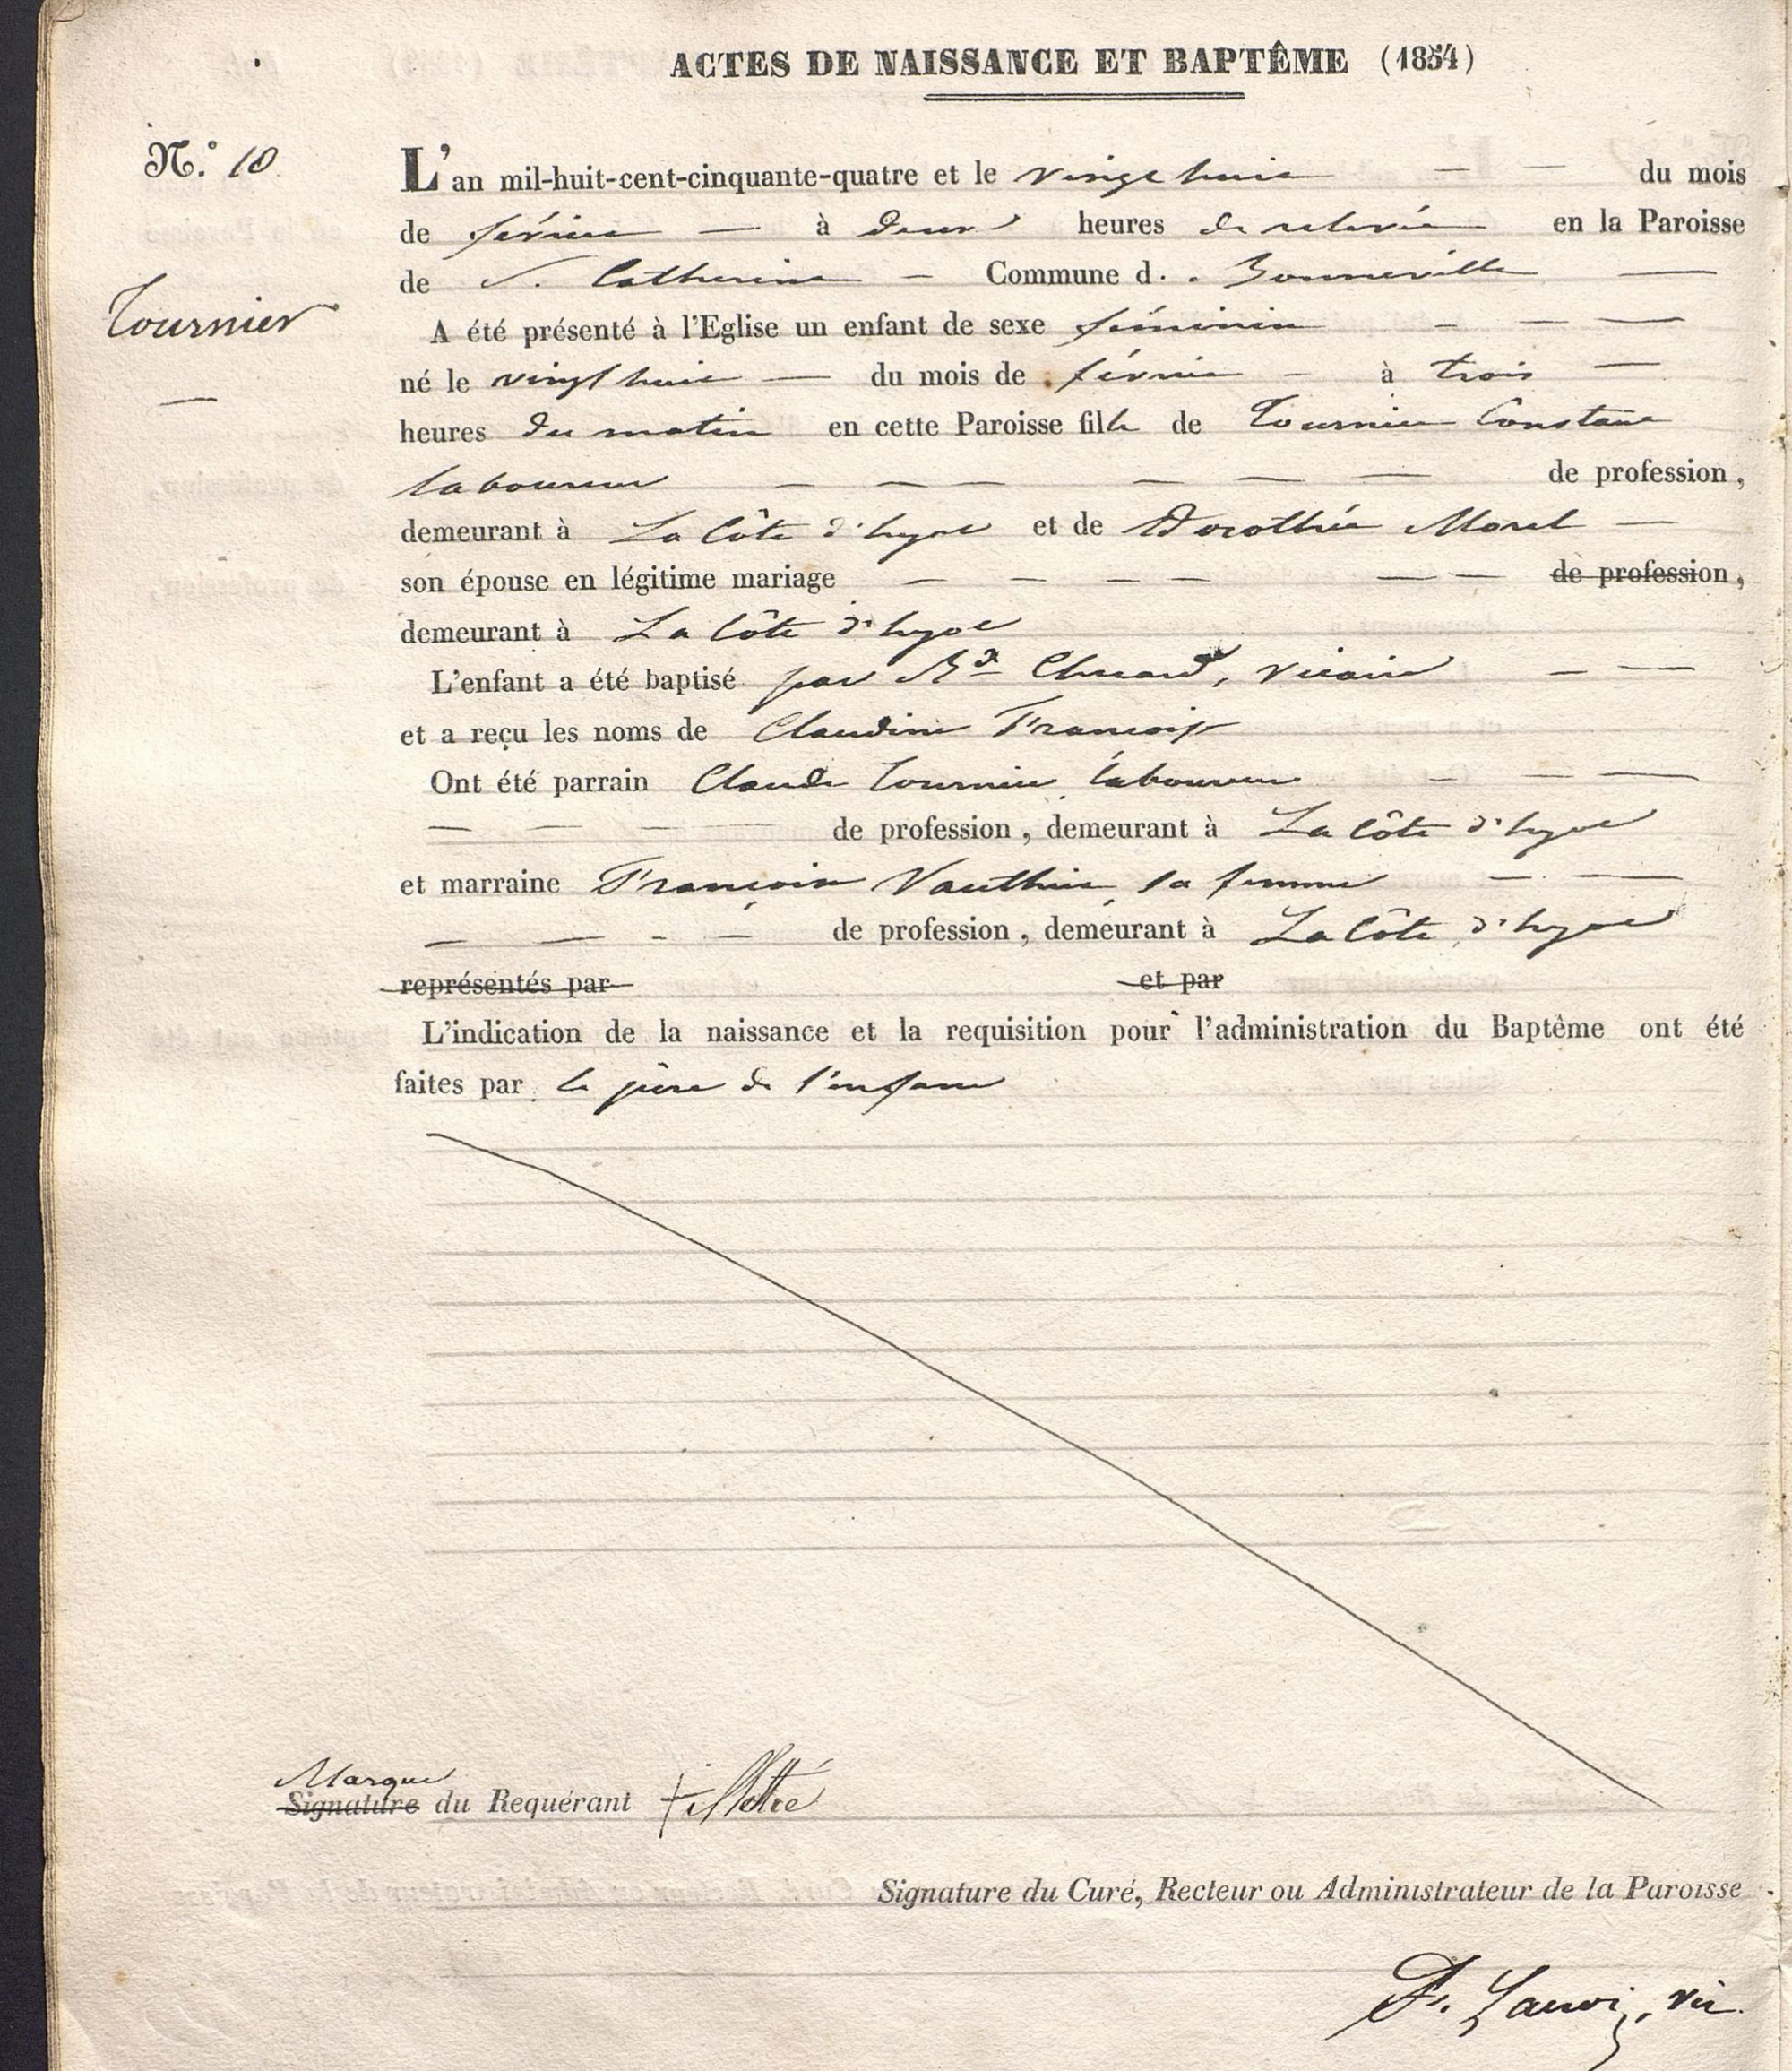 ACTES DE NAISSANCE ET BAPTÊME (1854)
N.° 10
L'an mil-huit-cent-cinquante-quatre et le vingt huit du mois
de février à deux heures de relevée en la Paroisse
de S. Catherine Commune d. Bonneville
Tournier
A été présenté à l'Eglise un enfant de sexe féminin
né le vingt huit du mois de février à trois
heures du matin en cette Paroisse fille de Tournier Constant
laboureur de profession,
demeurant à La Côte d'hyot et de Dorothée Morel
son épouse en légitime mariage de profession,
demeurant à La Côte d'hyot
L'enfant a été baptisé par Rd vicaire
et a reçu les noms de Claudine Françoise
Ont été parrain Claude Tournier laboureur
de profession, demeurant à La Côte d'hyot
et marraine Françoise Vauthier, sa femme
de profession, demeurant à La Côte d'hyot
représentés par et par
L'indication de la naissance et la requisition pour l'administration du Baptême ont été
faites par le père de l'enfant
Marque
Signature du Requérant + illettré
Signature du Curé, Recteur ou Administrateur de la Paroisse
vic.